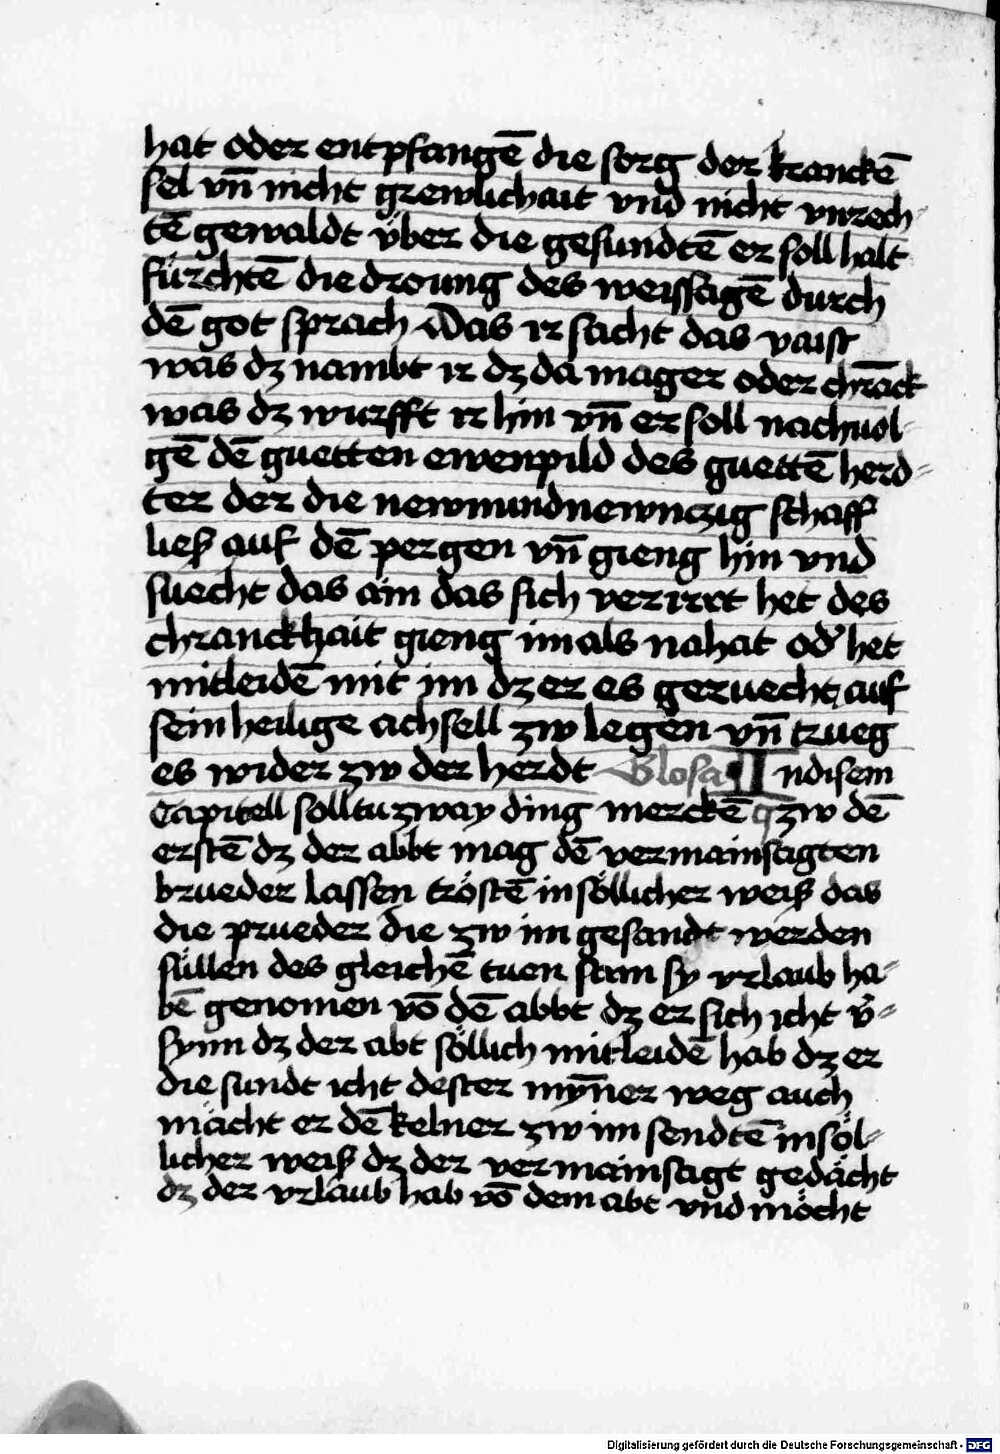 hat oder entpfangē die sorg der kranckē
sel vn̄ nicht grewlichait vnd nicht vnrech⸗
tē gewaldt vͤber die gesundtē er soll halt
fürchtē die droung des weissagē durch
dē got sprach Was ir sacht das vaist
was dz nambt ir dz da mager oder chrāck
was dz wurfft ir hin vn̄ er soll nachuol⸗
gē dē guetten ewenpild des guettē herd⸗
ter der die newnundnewnczig schaff
ließ auf dē pergen vn̄ gieng hin vnd
suecht das ain das sich verirrt het des
chranckhait gieng im als nahat od' het
mitleidē mit im dz er es geruecht auf
sein heilige achsell zw legen vn̄ trueg
es wider zw der herdt Glosa In disem
Capitell solltu zway ding merckē zw dē
erstē dz der abbt mag dē vermainsagten
brueder lassen tröstē in söllicher weiß das
die prueder die zw im gesandt werden
süllen des gleichē tuen sam sy vrlaub ha⸗
bē genomen vō dē abbt dz er sich icht v'⸗
synn dz der abt söllich mitleidē hab dz er
die sundt icht dester myn̄er weg auch
mächt er dē kelner zw im sendtē in söl⸗
licher weiß dz der vermainsagt gedächt
dz der vrlaub hab vō dem abt vnd möcht
Digitalisierung gefördert durch die Deutsche Forschungsgemeinschaft - DFG